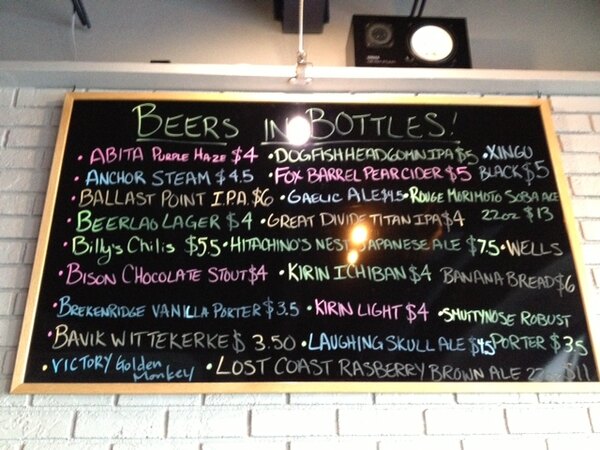 BEERS IN BOTTLES!
• ABITA PURPLE HAZE $4 • DOGFISHHEAD 60MIN IPA $5 • XINGU
• ANCHOR STEAM $4.5 • FOX BARREL PEAR CIDER $5 BLACK $5
• BALLAST POINT I.P.A. $6 • GAELIC ALE $4.5 • ROUGE MORIMOTO SOBA ALE
• BEERLAO LAGER $4 • GREAT DIVIDE TITAN IPA $4 22oz $13
• Billy's Chilis $5.5 • HITACHINO'S NEST JAPANESE ALE $7.5 • WELLS
• BISON CHOCOLATE STOUT $4 • KIRIN ICHIBAN $4 BANANA BREAD $6
• BREKENRIDGE VANILLA PORTER $3.5 • KIRIN LIGHT $4 • SMUTTYNOSE ROBUST
• BAVIK WITTEKERKE $3.50 • LAUGHING SKULL ALE $4.5 PORTER $3.5
• VICTORY Golden Monkey • LOST COAST RASBERRY BROWN ALE $11